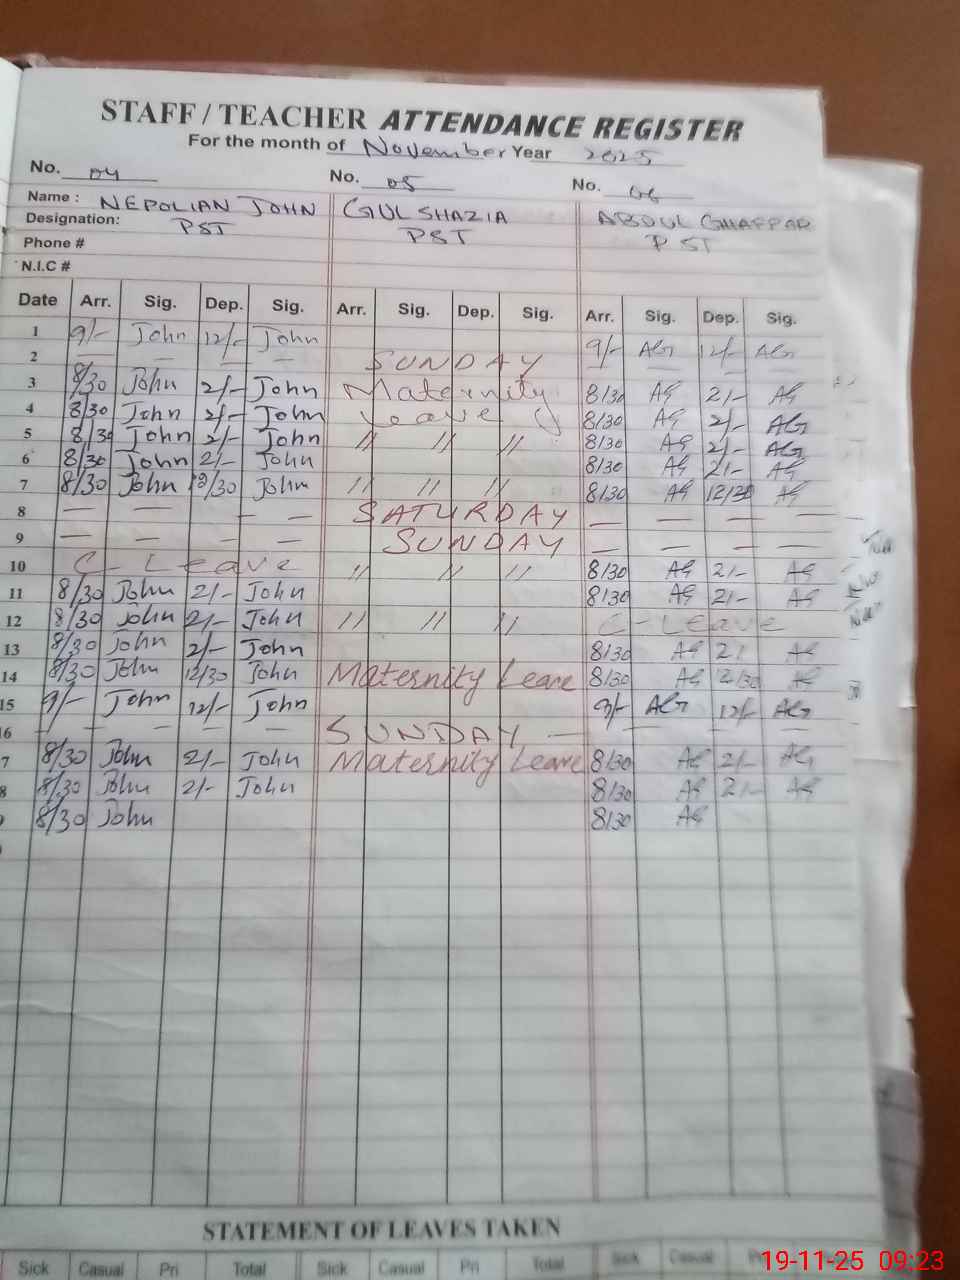 STAFF / TEACHER ATTENDANCE REGISTER
For the month of November Year 2025
No. 04 No. 05 No. 06
Name : NEPOLIAN JOHN GULSHAZIA ABDUL GHAFFAR
Designation: PST PST PST
Phone #
N.I.C #
Date Arr. Sig. Dep. Sig. Arr. Sig. Dep. Sig. Arr. Sig. Dep. Sig.
1 9/- John 12/- John 9/- AG 12/- AG
2 — — — SUNDAY — — — —
3 8/30 John 2/- John Maternity 8/30 AG 2/- AG
4 8/30 John 2/- John Leave 8/30 AG 2/- AG
5 8/30 John 2/- John // // // 8/30 AG 2/- AG
6 8/30 John 2/- John 8/30 AG 2/- AG
7 8/30 John 12/30 John // // // 8/30 AG 12/30 AG
8 — — — — SATURDAY — — — —
9 — — — — SUNDAY — — — —
10 C-Leave // // // 8/30 AG 2/- AG
11 8/30 John 2/- John 8/30 AG 2/- AG
12 8/30 John 2/- John // // // C-Leave
13 8/30 John 2/- John 8/30 AG 2/ AG
14 8/30 John 12/30 John Maternity Leave 8/30 AG 12/30 AG
15 9/- John 12/- John 9/- AG 12/- AG
6 — — — — SUNDAY — — — —
7 8/30 John 2/- John Maternity Leave 8/30 AG 2/- AG
8 8/30 John 2/- John 8/30 AG 2/- AG
8/30 John 8/30 AG
STATEMENT OF LEAVES TAKEN
Sick Casual Pri Total Sick Casual Pri Total Sick Casual
19-11-25 09:23